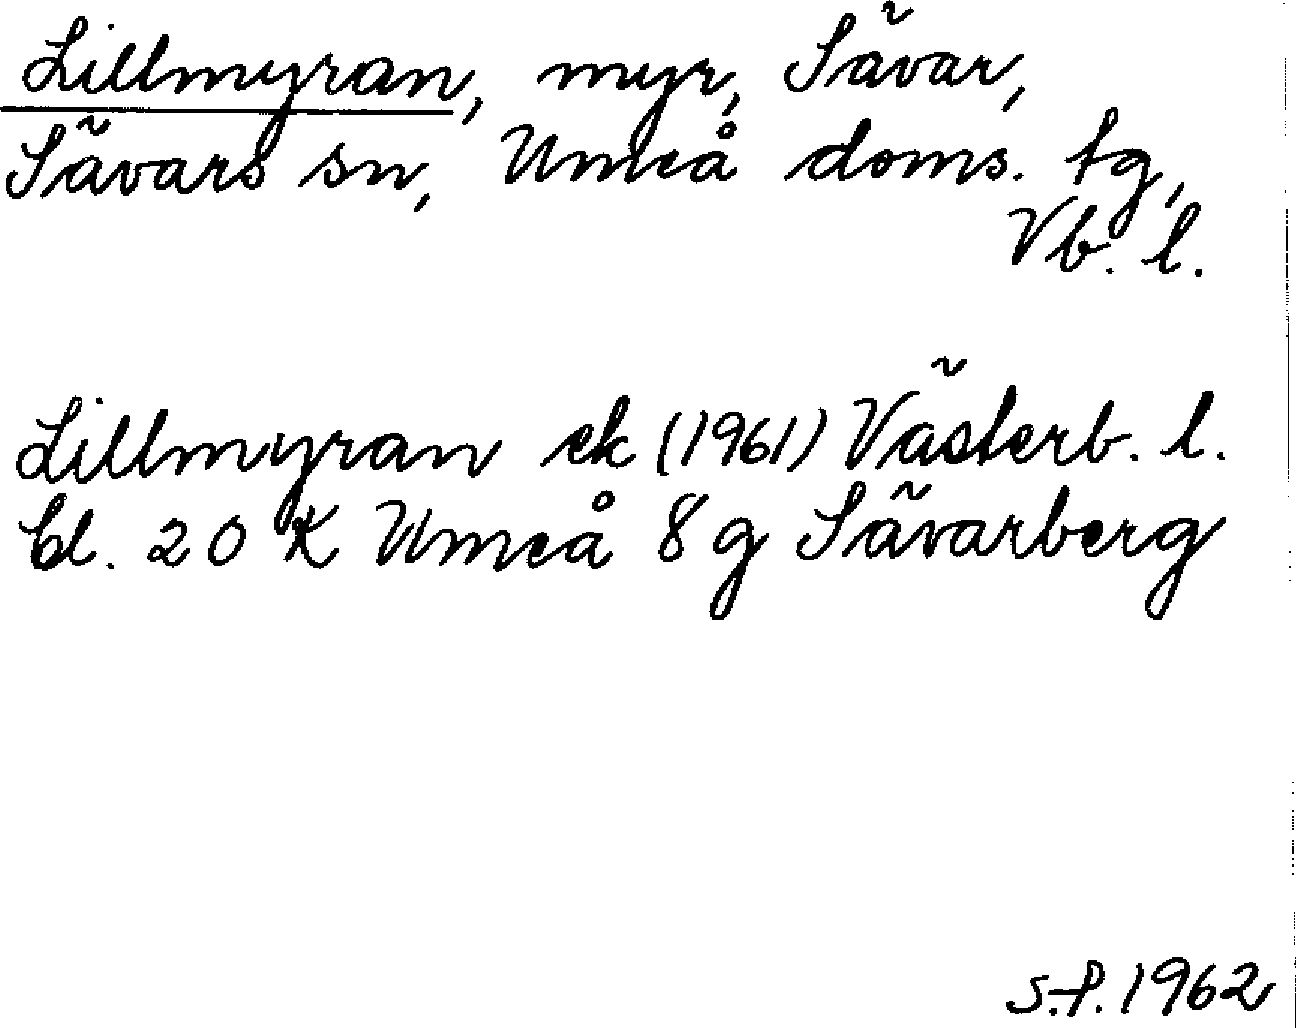 Lillmyran, myr, Sävar,
Sävars sn, Umeå doms. tg,
Vb. l.
Lillmyran ek (1961) Västerb. l.
bl. 20 K Umeå 8 g Sävarberg
S.f. 1962